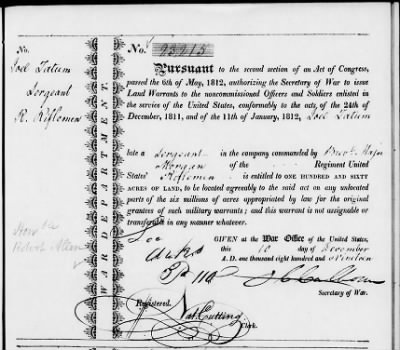 No.
Joel Tatum
Sergeant
R. Riflemen
WAR DEPARTMENT.
No.
Pursuant to the second section of an Act of Congress,
passed the 6th of May, 1812, authorizing the Secretary of War to issue
Land Warrants to the noncommissioned Officers and Soldiers enlisted
in the service of the United States, conformably to the acts, of the 24th of
December, 1811, and of the 11th of January, 1812, Joel Tatum
late a Sergeant in the company commanded by Brevt. Major
Morgan of the Regiment United
States' Riflemen is entitled to ONE HUNDRED AND SIXTY
ACRES OF LAND, to be located agreeably to the said act on any unlocated
parts of the six millions of acres appropriated by law for the original
grantees of such military warrants; and this warrant is not assignable or
transferable in any manner whatever.
GIVEN at the War Office of the United States,
this day of November
A. D. one thousand eight hundred and Nineteen
J C Calhoun
Secretary of War.
Registered.
Nat. Cutting
Clerk.